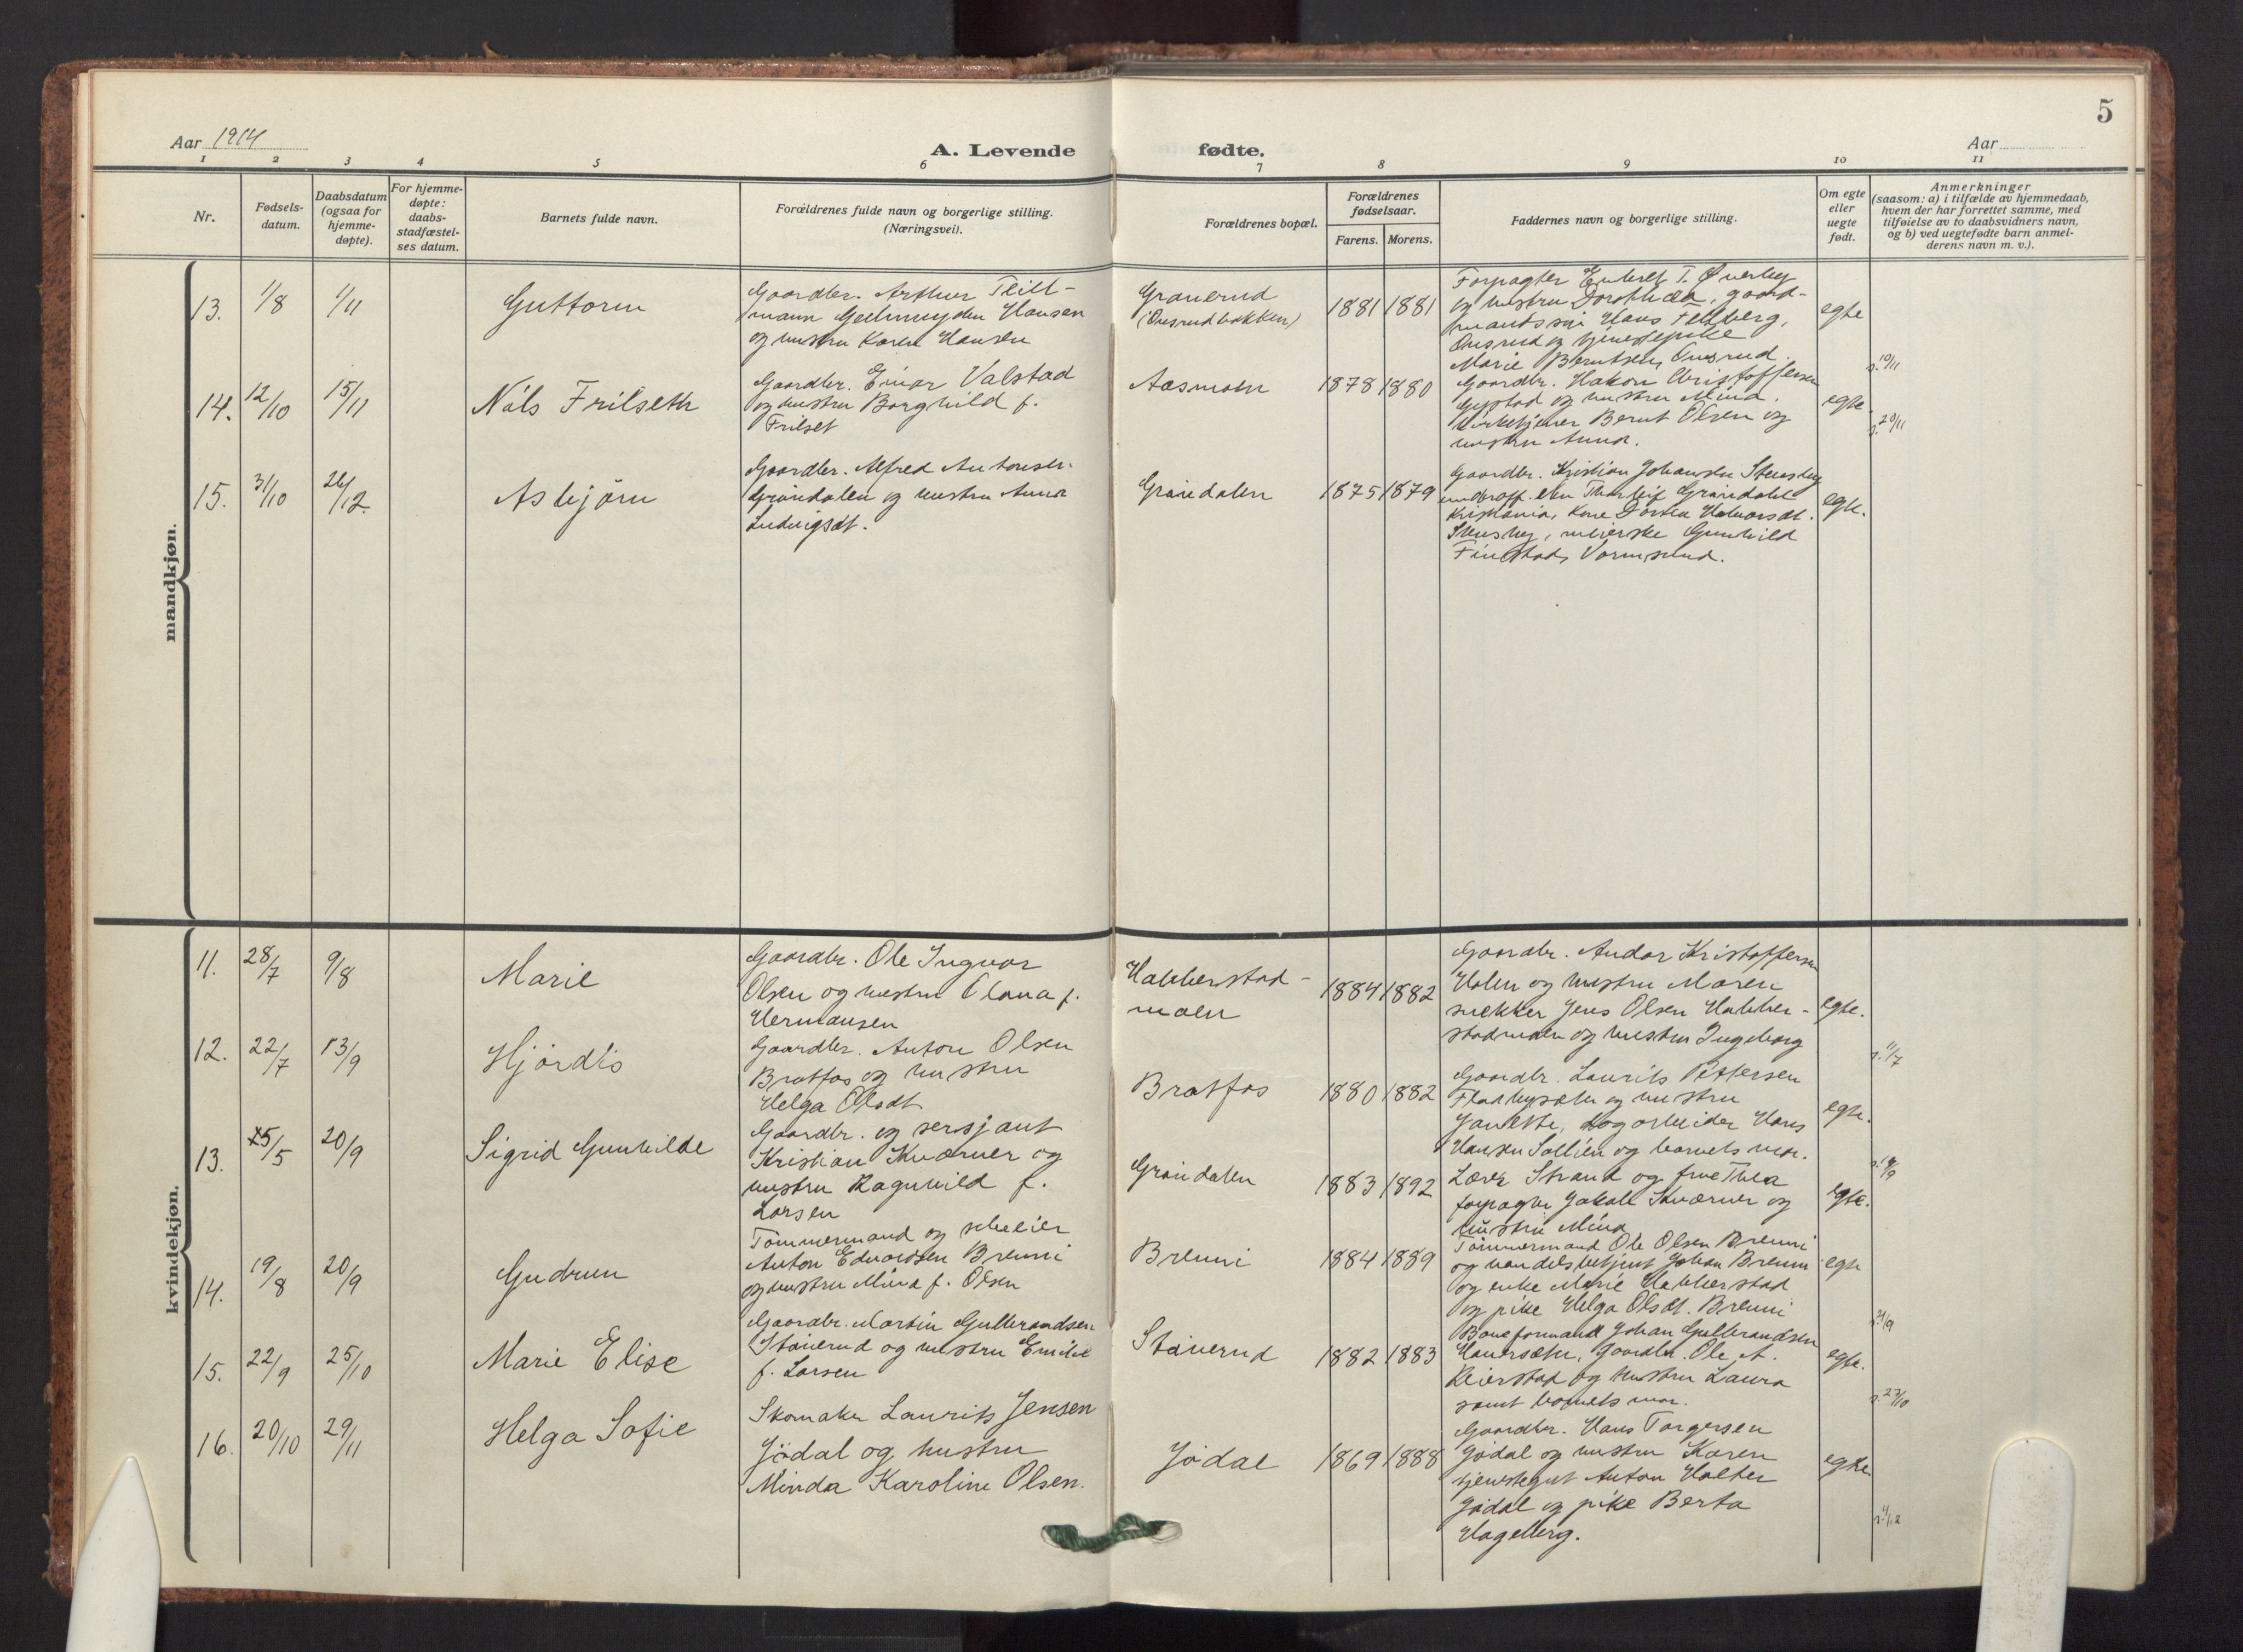 5
Aar 1914
A. Levende fødte.
Aar
1 2 3 4 5 6 7 8 9 10 11
Nr.
Fødsels-
datum.
Daabsdatum
(ogsaa for
hjemme-
døpte).
For hjemme-
døpte:
daabs-
stadfæstel-
ses datum.
Barnets fulde navn.
Forældrenes fulde navn og borgerlige stilling.
(Næringsvei).
Forældrenes bopæl.
Forældrenes
fødselsaar.
Farens. Morens.
Faddernes navn og borgerlige stilling.
Om egte
eller
uegte
født.
Anmerkninger
(saasom: a) i tilfælde av hjemmedaab,
hvem der har forrettet samme, med
tilføielse av to daabsvidners navn,
og b) ved uegtefødte barn anmel-
derens navn m. v.).
mandkjøn.
13. 1/8 1/11
Guttorm
Gaardbr. Arthur
mann Geelmuyden Hansen
og hustru Karen Hansen
Granerud
(Onsrudbakken)
1881 1881
Forpagter T. Øverby
og hustru Dorothea, gaard-
mandssøn Hans
Onsrud og tjenestepike
Marie Berntsen, Onsrud.
egte
10/11
14. 12/10 15/11
Nils Frilseth
Gaardbr. Einar Valstad
og hustru Borghild f.
Frilset
Aasmoen
1878 1880
Gaardbr. Hakon Christoffersen
Gystad og hustru Mina.
Kirketjener Bernt Olsen og
hustru Anna.
egte
s. 20/11
15. 31/10 26/12
Asbjörn
Gaardbr. Alfred Antonsen
Gröndalen og hustru Anna
Ludvigsdt.
Gröndalen
1875 1879
Gaardbr. Kristian Johansen Stensby
underoff. elev Thorleif Gröndalen
Kristiania, kone Dorthea Halvorsdt.
Stensby, meierske Gunhild
Finstad, Vormsund.
egte.
kvindekjøn.
11. 28/7 9/8
Marie
Gaardbr. Ole Ingvar
Olsen og hustru Olava f.
Hermansen
Habberstad-
moen
1884 1882
Gaardbr. Andor Kristoffersen
Holm og hustru Maren
snekker Jens Olsen Habber-
stadmoen og hustru Ingeborg
egte.
12. 22/7 13/9
Hjördis
Gaardbr. Anton Olsen
Bratfos og hustru
Helga Olsdt.
Bratfos
1880 1882
Gaardbr. Laurits Pettersen
Fladbysæter og hustru
Janette, skogarbeider Hans
Hansen Sollien og barnets mor.
egte.
13. 15/5 20/9
Sigrid Gunhilde
Gaardbr. og sersjant
Kristian Kværner og
hustru Ragnhild f.
Larsen
Gröndalen
1883 1892
Lærer Strand og frue Thea
forpagter Jakob Kværner og
hustru Mina
egte.
14. 19/8 20/9
Gudrun
Tömmermand og selveier
Anton Edvardsen Brenni
og hustru Mina f. Olsen
Brenni
1884 1889
Tömmermand Ole Olsen Brenni
og handelsbetjent Johan Brenni
og enke Marie Habberstad
og pike Helga Olsdt. Brenni
egte
15. 22/9 25/10
Marie Elise
Gaardbr. Martin Gulbrandsen
Stöverud og hustru Emilie
f. Larsen
Stöverud
1882 1883
Baneformand Johan Gulbrandsen
Haversæter, Gaardbr. Ole A.
Reierstad og hustru Laura
samt barnets mor.
egte.
s. 27/10
16. 20/10 29/11
Helga Sofie
Skomaker Laurits Jensen
Jödal og hustru
Minda Karoline Olsen.
Jödal
1869 1888
Gaardbr. Hans Torgersen
Jödal og hustru Karen
tjenstegut Anton Holter
Jödal og pike Berta
Hageberg.
egte